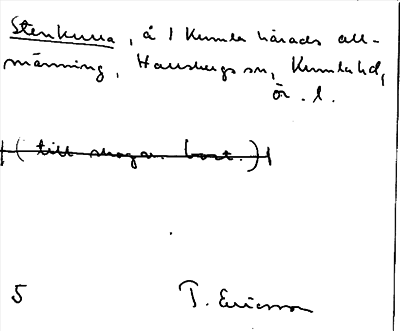 Stenkulla, å i Kumla härads all-
männing, Hallsbergs sn, Kumla hd,
Ör. l.
(till skogar. bort.)
5 T. Ericsson